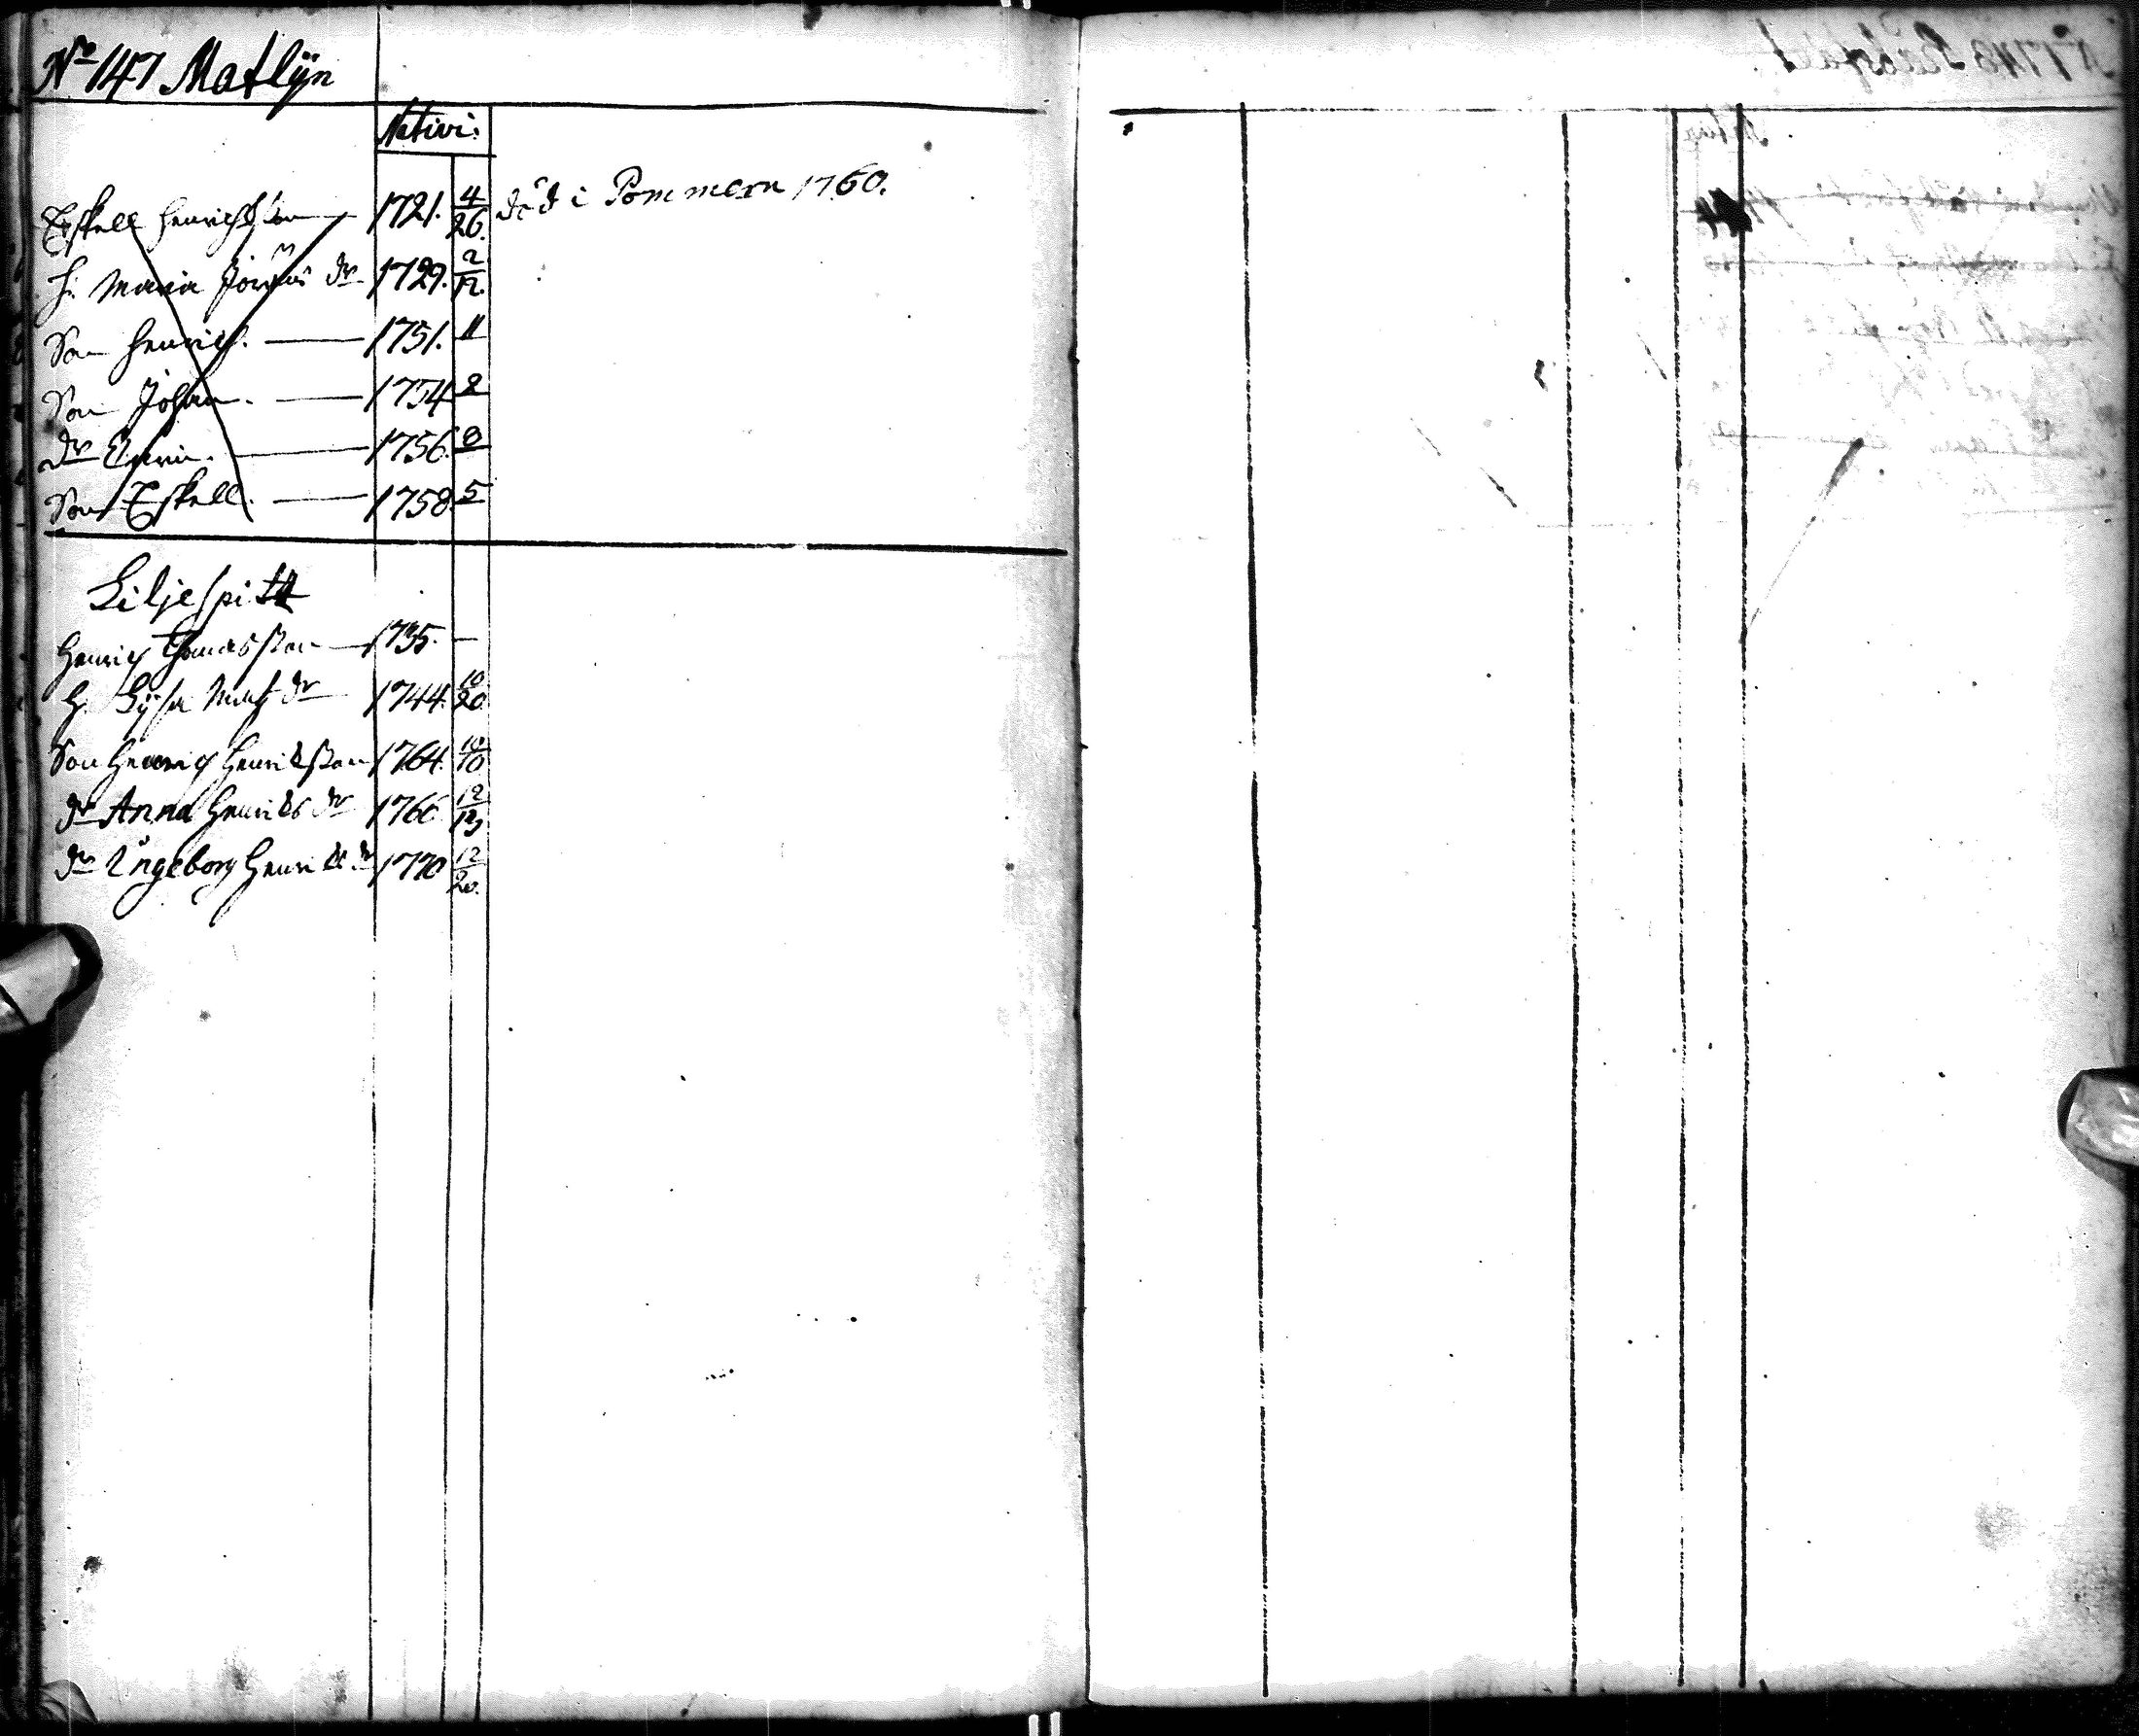 No 147 Matlijn
Nativi:
Eskell Henrichsson 1721. 4/26. död i Pommern 1760.
h. Maria Jöräns dr 1729. 2/12.
Son Henrich. 1751. 11
Son Johan. 1754 2
dr 1756. 8
Son Eskell. 1758. 5
Liljespitt
Henrich Thomasson 1735. —
h. Lijsa Mats dr 1744. 10/20
Son Henrich Henriksson 1764. 10/10
dr Anna Henriks dr 1766 12
dr Ingeborg Henriks dr 1770 12/20.